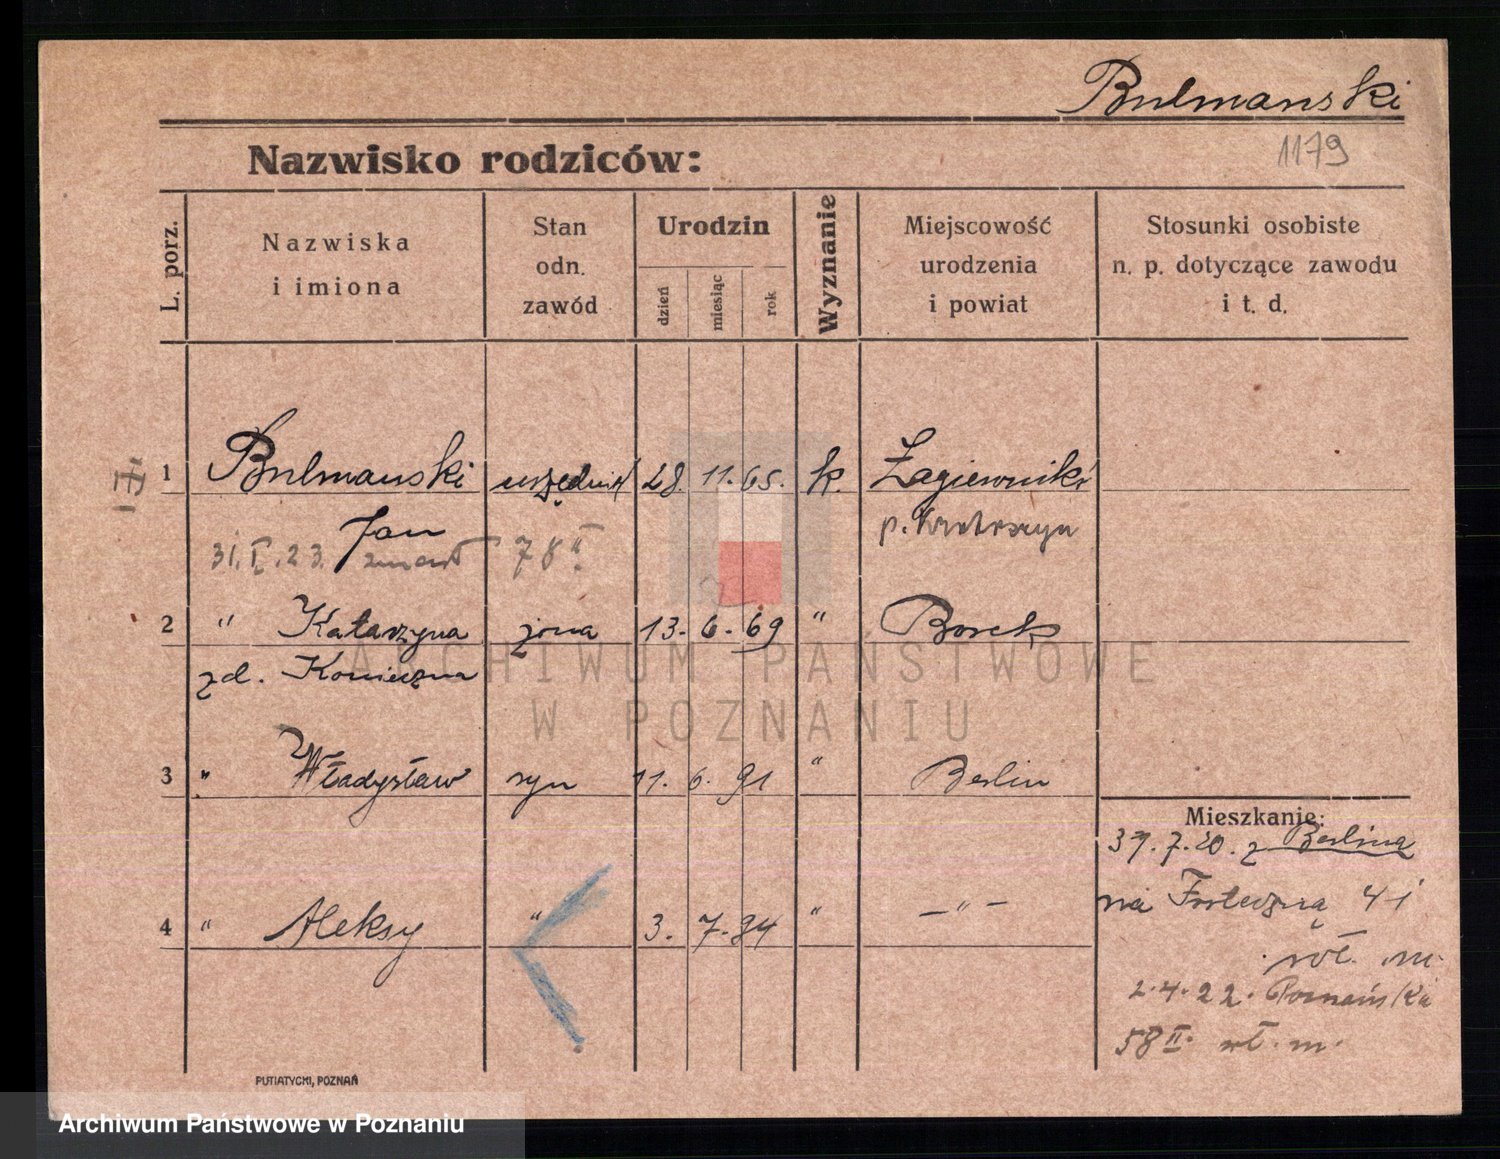 Bulmanski
1179
Nazwisko rodziców:
L. porz.
Nazwiska i imiona
Stan odn. zawód
Urodzin
dzień
miesiąc
rok
Wyznanie
Miejscowość urodzenia i powiat
Stosunki osobiste n. p. dotyczące zawodu i t. d.
1 Bulmanski urzędnik 28. 11. 65. k. Łagiewniki
Jan p. Krotoszyn
31. I. 23. zmarł 78
2 " Katarzyna żona 13. 6. 69 " Borek
zd. Konieczna
3 " Władysław syn 11. 6. 91 " Berlin
4 " Aleksy " 3. 7. 94 " — " —
Mieszkanie:
7. 20. z Berlina
na Forteczna 4 I
wł. m.
2. 4. 22. Poznańska
58 II. wł. m.
PUTIATYCKI, POZNAŃ
ARCHIWUM PAŃSTWOWE
W POZNANIU
Archiwum Państwowe w Poznaniu